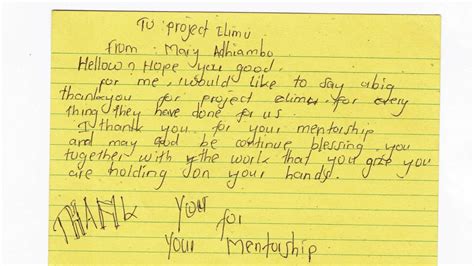 To : project Elimu
From : Mary Adhiambo
Hellow ? Hope you good.
for me, I would like to say a big
thank you for project elimu for every
thing they have done for us.
I thank you for your mentorship
and may God be continue blessing you
together with the work that you give you
are holding on your hands.
THANK You for
Your Mentorship